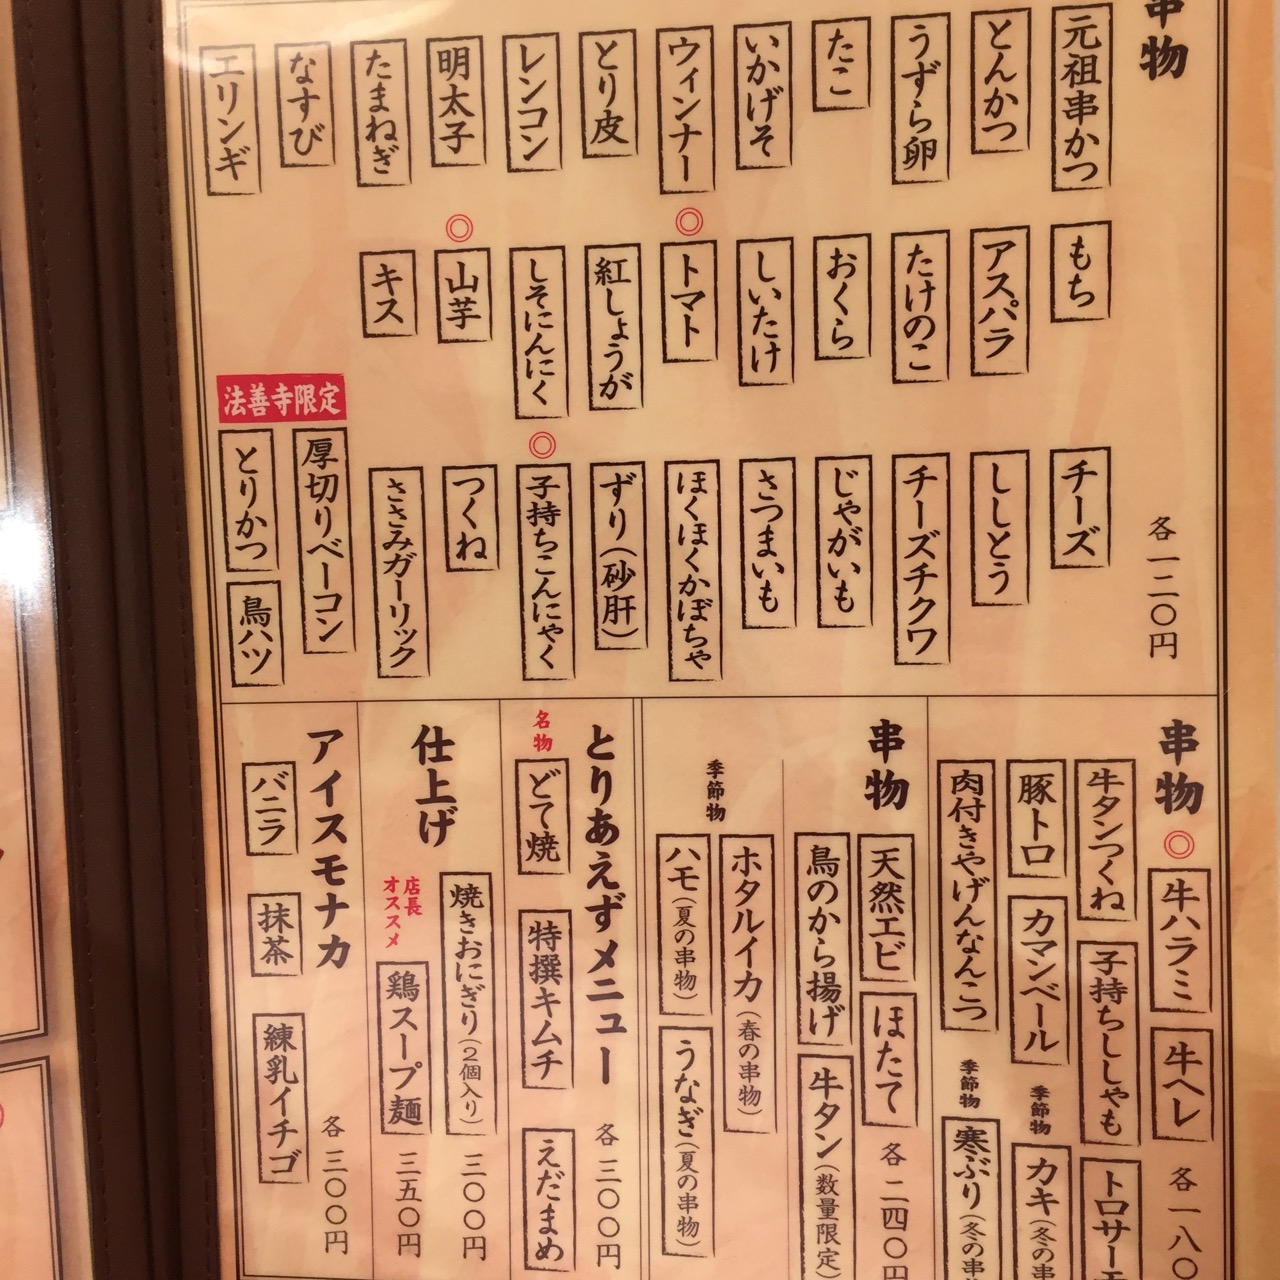 串物
元祖串かつ
とんかつ
うずら卵
たこ
いかげそ
ウィンナー
とり皮
レンコン
明太子
たまねぎ
なすび
エリンギ
もち
アスパラ
たけのこ
おくら
しいたけ
◎
トマト
紅しょうが
しそにんにく
◎
山芋
キス
チーズ
ししとう
チーズチクワ
じゃがいも
さつまいも
ほくほくかぼちゃ
ずり(砂肝)
◎
子持ちこんにゃく
つくね
ささみガーリック
法善寺限定
厚切りベーコン
とりかつ
鳥ハツ
各一二〇円
串物
◎
牛ハラミ
牛ヘレ
牛タンつくね
子持ちししゃも
トロサー
豚トロ
カマンベール
季節物
カキ(冬の串
肉付きやげんなんこつ
季節物
寒ぶり(冬の串
各一八〇
串物
天然エビ
ほたて
鳥のから揚げ
牛タン(数量限定)
各二四〇円
季節物
ホタルイカ(春の串物)
ハモ(夏の串物)
うなぎ(夏の串物)
とりあえずメニュー
名物
どて焼
特撰キムチ
えだまめ
各三〇〇円
仕上げ
焼きおにぎり(2個入り)
三〇〇円
店長
オススメ
鶏スープ麺
三五〇円
アイスモナカ
バニラ
抹茶
練乳イチゴ
各三〇〇円